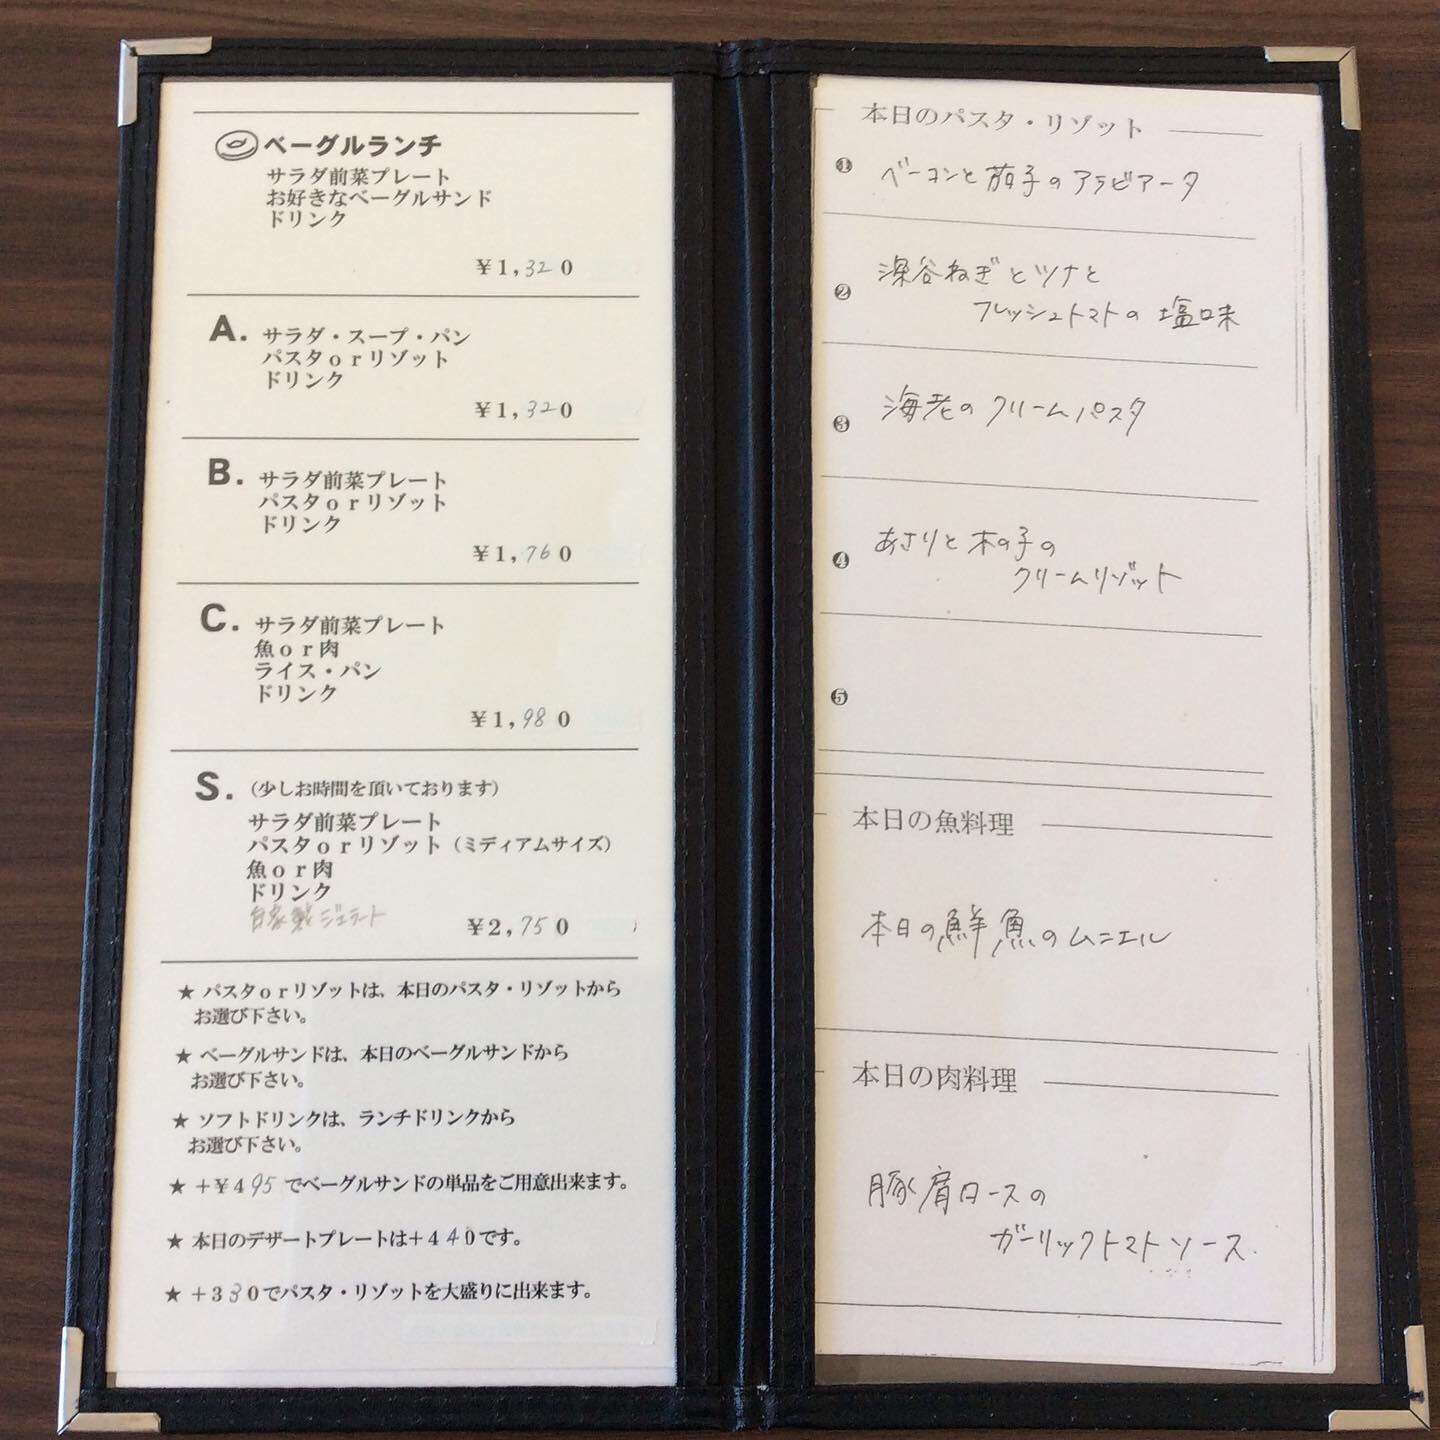 ベーグルランチ
サラダ前菜プレート
お好きなベーグルサンド
ドリンク
￥1,320
A.
サラダ・スープ・パン
パスタorリゾット
ドリンク
￥1,320
B.
サラダ前菜プレート
パスタorリゾット
ドリンク
￥1,760
C.
サラダ前菜プレート
魚or肉
ライス・パン
ドリンク
￥1,980
S. (少しお時間を頂いております)
サラダ前菜プレート
パスタorリゾット (ミディアムサイズ)
魚or肉
ドリンク
自家製ジェラート
￥2,750
★ パスタorリゾットは、本日のパスタ・リゾットから
お選び下さい。
★ ベーグルサンドは、本日のベーグルサンドから
お選び下さい。
★ ソフトドリンクは、ランチドリンクから
お選び下さい。
★ +￥495でベーグルサンドの単品をご用意出来ます。
★ 本日のデザートプレートは+440です。
★ +330でパスタ・リゾットを大盛りに出来ます。
本日のパスタ・リゾット
❶ ベーコンと茄子のアラビアータ
❷ 深谷ねぎとツナと
フレッシュトマトの塩味
❸ 海老のクリームパスタ
❹ あさりと木の子の
クリームリゾット
❺
本日の魚料理
本日の鮮魚のムニエル
本日の肉料理
豚肩ロースの
ガーリックトマトソース.